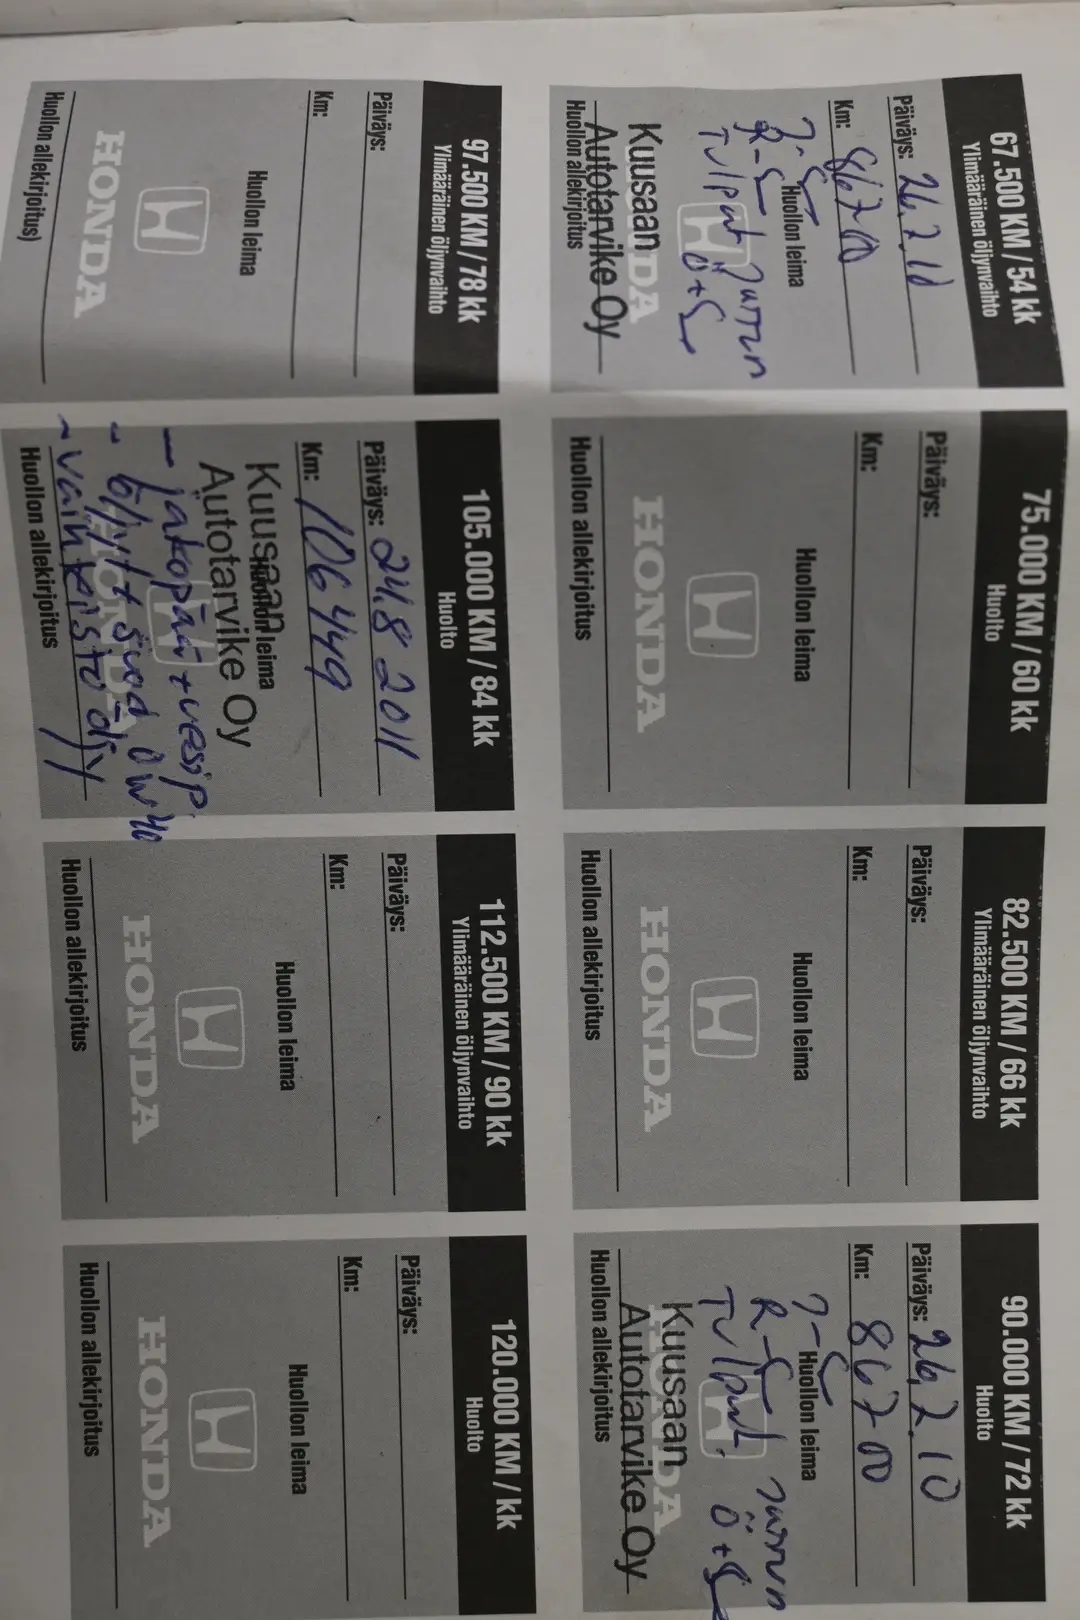 67.500 KM / 54 kk
Ylimääräinen öljynvaihto
Päiväys: 26.2.10
Km: 86700
Huollon leima
R-S
Ö+S
HONDA
Kuusaan
Autotarvike Oy
Huollon allekirjoitus
75.000 KM / 60 kk
Huolto
Päiväys:
Km:
Huollon leima
HONDA
Huollon allekirjoitus
82.500 KM / 66 kk
Ylimääräinen öljynvaihto
Päiväys:
Km:
Huollon leima
HONDA
Huollon allekirjoitus
90.000 KM / 72 kk
Huolto
Päiväys: 26.2.10
Km: 86700
Huollon leima
R-S
Ö+S
HONDA
Kuusaan
Autotarvike Oy
Huollon allekirjoitus
97.500 KM / 78 kk
Ylimääräinen öljynvaihto
Päiväys:
Km:
Huollon leima
HONDA
Huollon allekirjoitus)
105.000 KM / 84 kk
Huolto
Päiväys: 24.8 2011
Km: 106449
Huollon leima
Kuusaan
Autotarvike Oy
- jakopää + vesip
- öljyt + suod 0W40
HONDA
- vaihteisto öljy
Huollon allekirjoitus
112.500 KM / 90 kk
Ylimääräinen öljynvaihto
Päiväys:
Km:
Huollon leima
HONDA
Huollon allekirjoitus
120.000 KM / kk
Huolto
Päiväys:
Km:
Huollon leima
HONDA
Huollon allekirjoitus